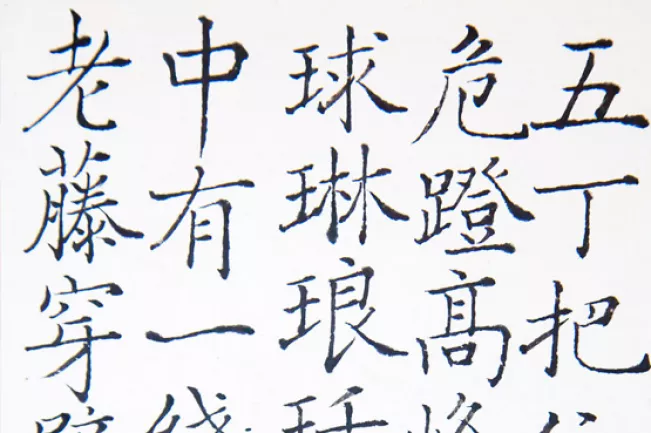 五丁把
危蹬髙
球琳琅
中有一
老藤穿